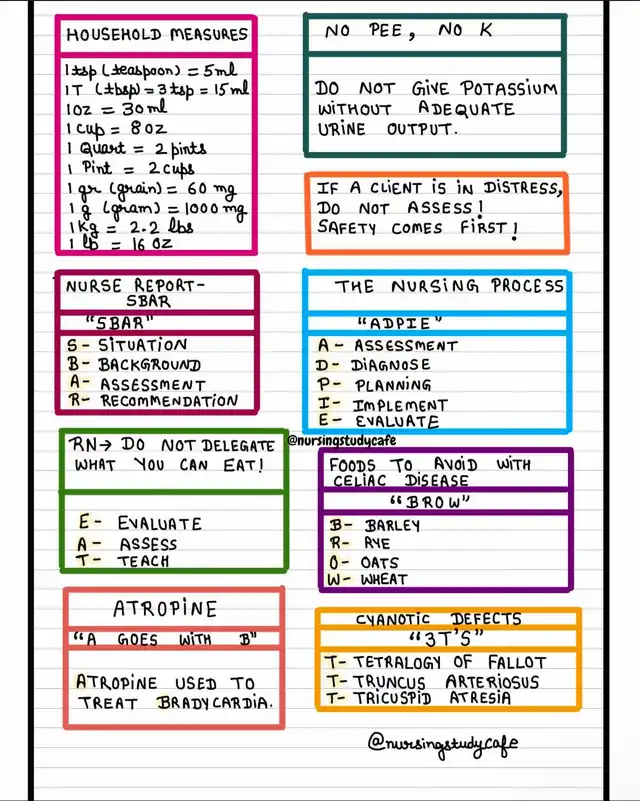 HOUSEHOLD MEASURES
1 tsp (teaspoon) = 5ml
1T (tbsp) = 3 tsp = 15ml
1oz = 30ml
1 Cup = 8oz
1 Quart = 2 pints
1 Pint = 2 cups
1 gr (grain) = 60 mg
1 g (gram) = 1000 mg
1Kg = 2.2 lbs
1 lb = 16 OZ
NO PEE, NO K
DO NOT GIVE POTASSIUM
WITHOUT ADEQUATE
URINE OUTPUT.
IF A CLIENT IS IN DISTRESS,
DO NOT ASSESS!
SAFETY COMES FIRST!
NURSE REPORT-
SBAR
"SBAR"
S- SITUATION
B- BACKGROUND
A- ASSESSMENT
R- RECOMMENDATION
THE NURSING PROCESS
"ADPIE"
A- ASSESSMENT
D- DIAGNOSE
P- PLANNING
I- IMPLEMENT
E- EVALUATE
@nursingstudycafe
RN→ DO NOT DELEGATE
WHAT YOU CAN EAT!
E- EVALUATE
A- ASSESS
T- TEACH
FOODS TO AVOID WITH
CELIAC DISEASE
"BROW"
B- BARLEY
R- RYE
O- OATS
W- WHEAT
ATROPINE
"A GOES WITH B"
ATROPINE USED TO
TREAT BRADYCARDIA.
CYANOTIC DEFECTS
"3T'S"
T- TETRALOGY OF FALLOT
T- TRUNCUS ARTERIOSUS
T- TRICUSPID ATRESIA
@nursingstudycafe